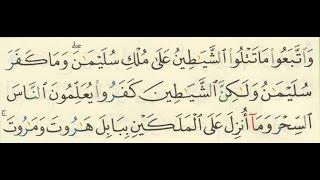 وَٱتَّبَعُوا۟ مَا تَتْلُوا۟ ٱلشَّيَـٰطِينُ عَلَىٰ مُلْكِ سُلَيْمَـٰنَ ۖ وَمَا كَفَرَ
سُلَيْمَـٰنُ وَلَـٰكِنَّ ٱلشَّيَـٰطِينَ كَفَرُوا۟ يُعَلِّمُونَ ٱلنَّاسَ
ٱلسِّحْرَ وَمَآ أُنزِلَ عَلَى ٱلْمَلَكَيْنِ بِبَابِلَ هَـٰرُوتَ وَمَـٰرُوتَ ۚ